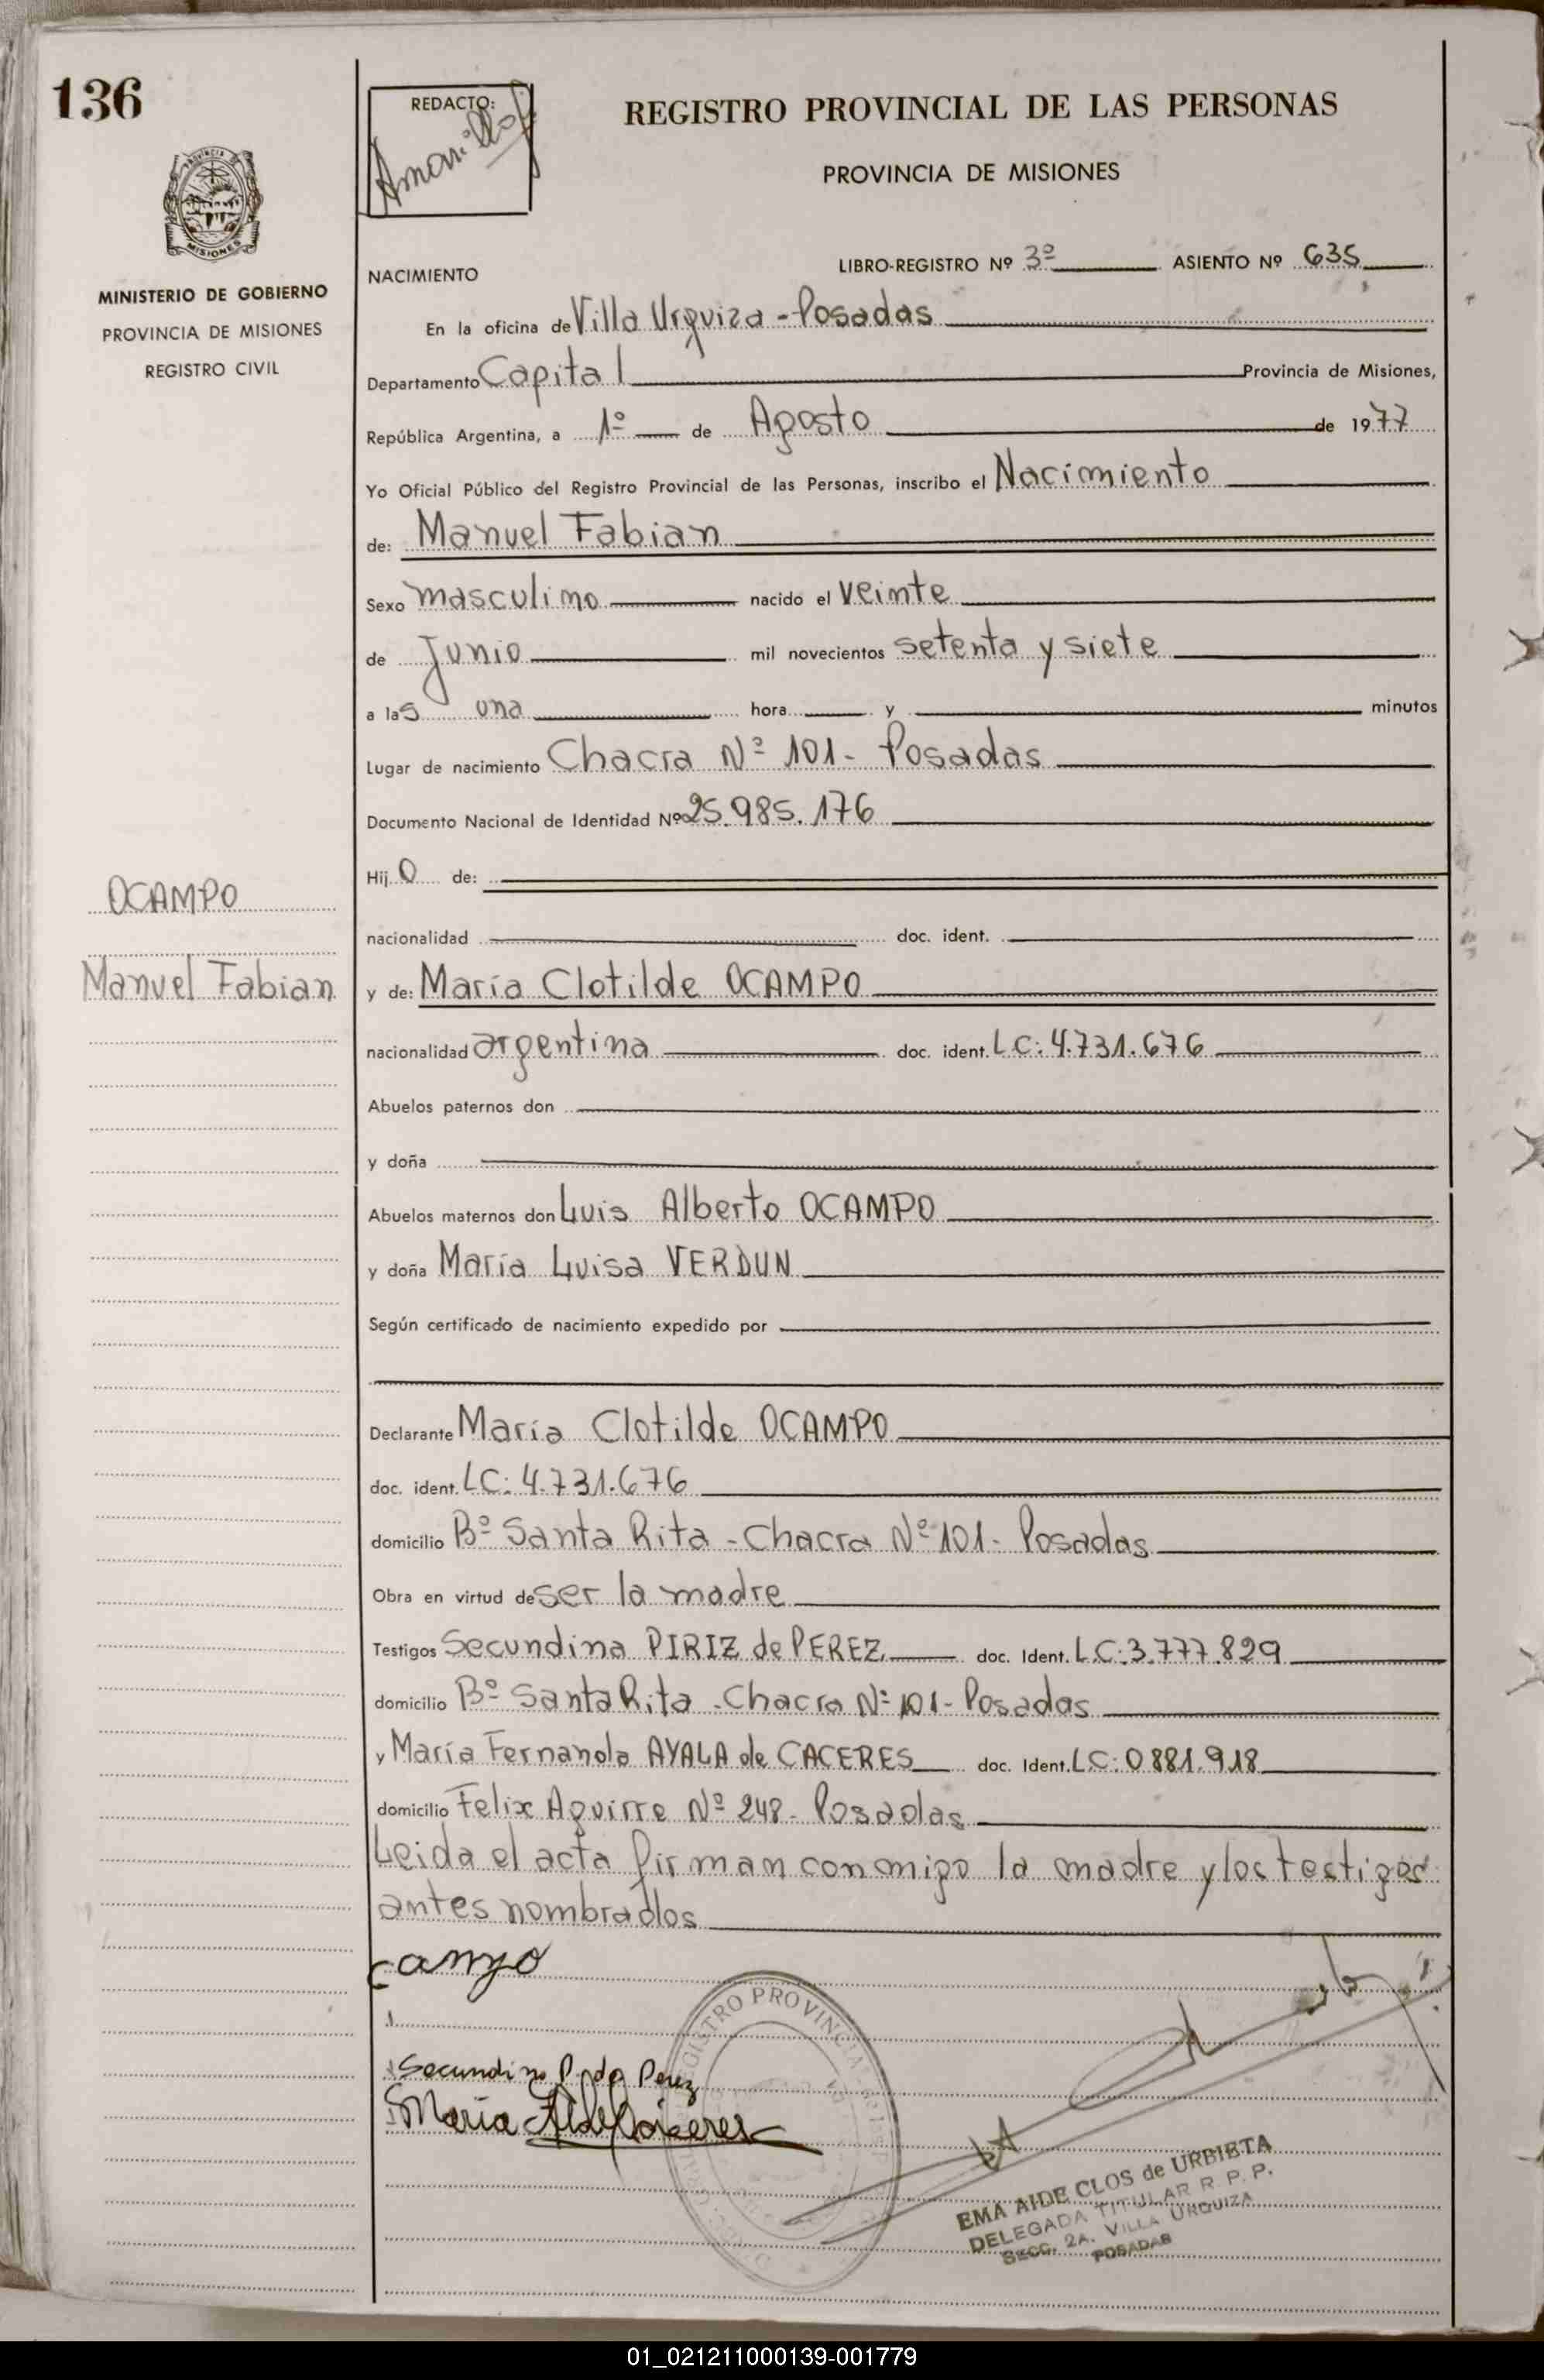 136
REDACTO:
REGISTRO PROVINCIAL DE LAS PERSONAS
PROVINCIA DE MISIONES
PROVINCIA
MISIONES
MINISTERIO DE GOBIERNO
PROVINCIA DE MISIONES
REGISTRO CIVIL
NACIMIENTO LIBRO-REGISTRO Nº 3º ASIENTO Nº 635
En la oficina de Villa Urquiza - Posadas
Departamento Capital Provincia de Misiones,
República Argentina, a 1º de Agosto de 1977
Yo Oficial Público del Registro Provincial de las Personas, inscribo el Nacimiento
de: Manuel Fabian
Sexo masculino nacido el veinte
de Junio mil novecientos setenta y siete
a las una hora y minutos
Lugar de nacimiento Chacra Nº 101 - Posadas
Documento Nacional de Identidad Nº 25.985.176
Hijo de:
OCAMPO
nacionalidad doc. ident.
Manuel Fabian
y de: María Clotilde OCAMPO
nacionalidad argentina doc. ident. LC: 4.731.676
Abuelos paternos don
y doña
Abuelos maternos don Luis Alberto OCAMPO
y doña María Luisa VERDUN
Según certificado de nacimiento expedido por
Declarante María Clotilde OCAMPO
doc. ident. LC: 4.731.676
domicilio Bº Santa Rita - Chacra Nº 101 - Posadas
Obra en virtud de ser la madre
Testigos Secundina PIRIZ de PEREZ doc. Ident. LC: 3.777.829
domicilio Bº Santa Rita - Chacra Nº 101 - Posadas
y María Fernanda AYALA de CACERES doc. Ident. LC: 0881.918
domicilio Felix Aguirre Nº 248 - Posadas
Leida el acta firman conmigo la madre y los testigos
antes nombrados
REGISTRO PROVINCIAL
Perez
María
EMA AIDE CLOS de URBIETA
DELEGADA TITULAR R. P. P.
SECC. 2A. VILLA URQUIZA
POSADAS
01_021211000139-001779